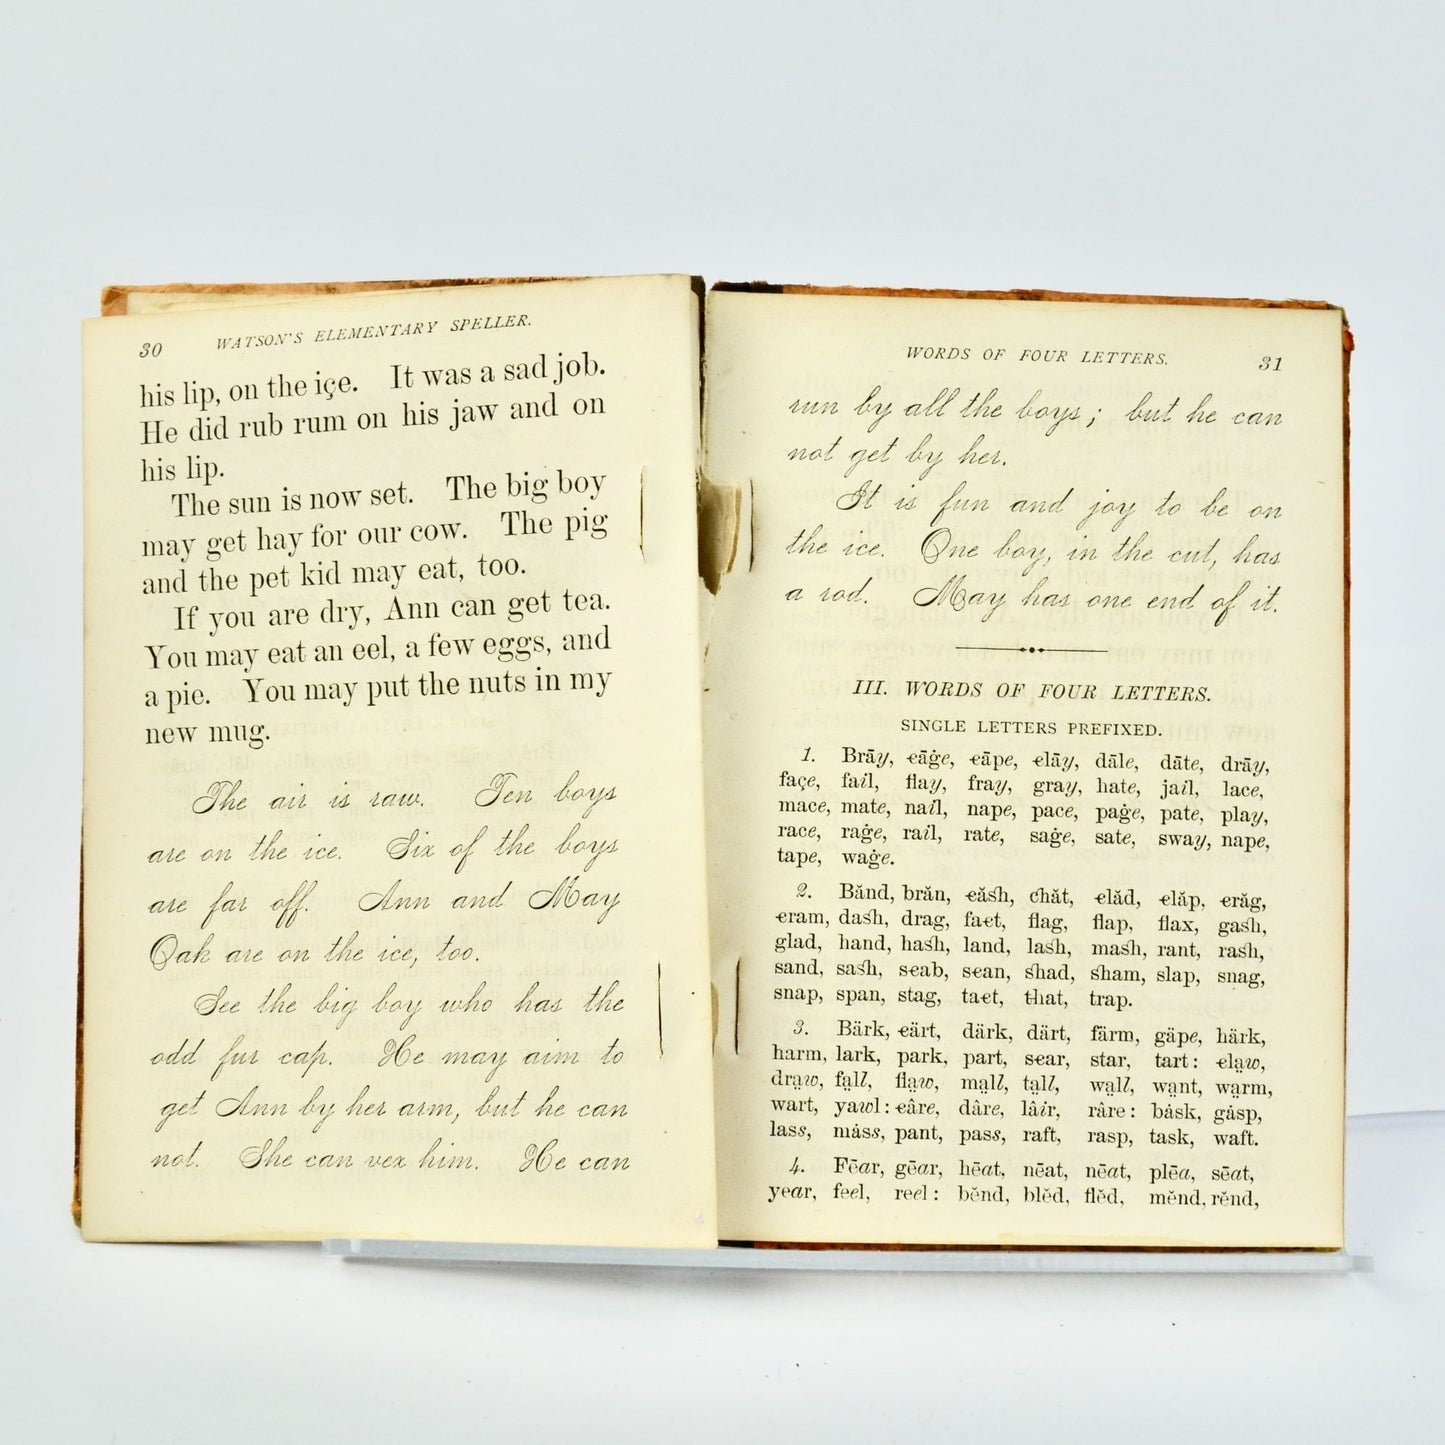 30 WATSON'S ELEMENTARY SPELLER.
his lip, on the içe. It was a sad job.
He did rub rum on his jaw and on
his lip.
The sun is now set. The big boy
may get hay for our cow. The pig
and the pet kid may eat, too.
If you are dry, Ann can get tea.
You may eat an eel, a few eggs, and
a pie. You may put the nuts in my
new mug.
The air is raw. Ten boys
are on the ice. Six of the boys
are far off. Ann and May
Oak are on the ice, too.
See the big boy who has the
odd fur cap. He may aim to
get Ann by her arm, but he can
not. She can vex him. He can
WORDS OF FOUR LETTERS. 31
run by all the boys; but he can
not get by her.
It is fun and joy to be on
the ice. One boy, in the cut, has
a rod. May has one end of it.
III. WORDS OF FOUR LETTERS.
SINGLE LETTERS PREFIXED.
1. Brāy, cāġe, cāpe, clāy, dāle, dāte, drāy,
façe, fail, flay, fray, gray, hate, jail, lace,
mace, mate, nail, nape, pace, paġe, pate, play,
race, raġe, rail, rate, saġe, sate, sway, nape,
tape, waġe.
2. Bănd, brăn, căsh, chăt, clăd, clăp, crăg,
cram, dash, drag, fact, flag, flap, flax, gash,
glad, hand, hash, land, lash, mash, rant, rash,
sand, sash, scab, scan, shad, sham, slap, snag,
snap, span, stag, tact, that, trap.
3. Bärk, cärt, därk, därt, färm, gäpe, härk,
harm, lark, park, part, scar, star, tart: cla̤w,
dra̤w, fa̤ll, fla̤w, ma̤ll, ta̤ll, wa̤ll, wa̤nt, wa̤rm,
wart, yawl: câre, dâre, lâir, râre: bȧsk, gȧsp,
lass, mȧss, pant, pass, raft, rasp, task, waft.
4. Fēar, gēar, hēat, nēat, nēat, plēa, sēat,
year, feel, reel: bĕnd, blĕd, flĕd, mĕnd, rĕnd,